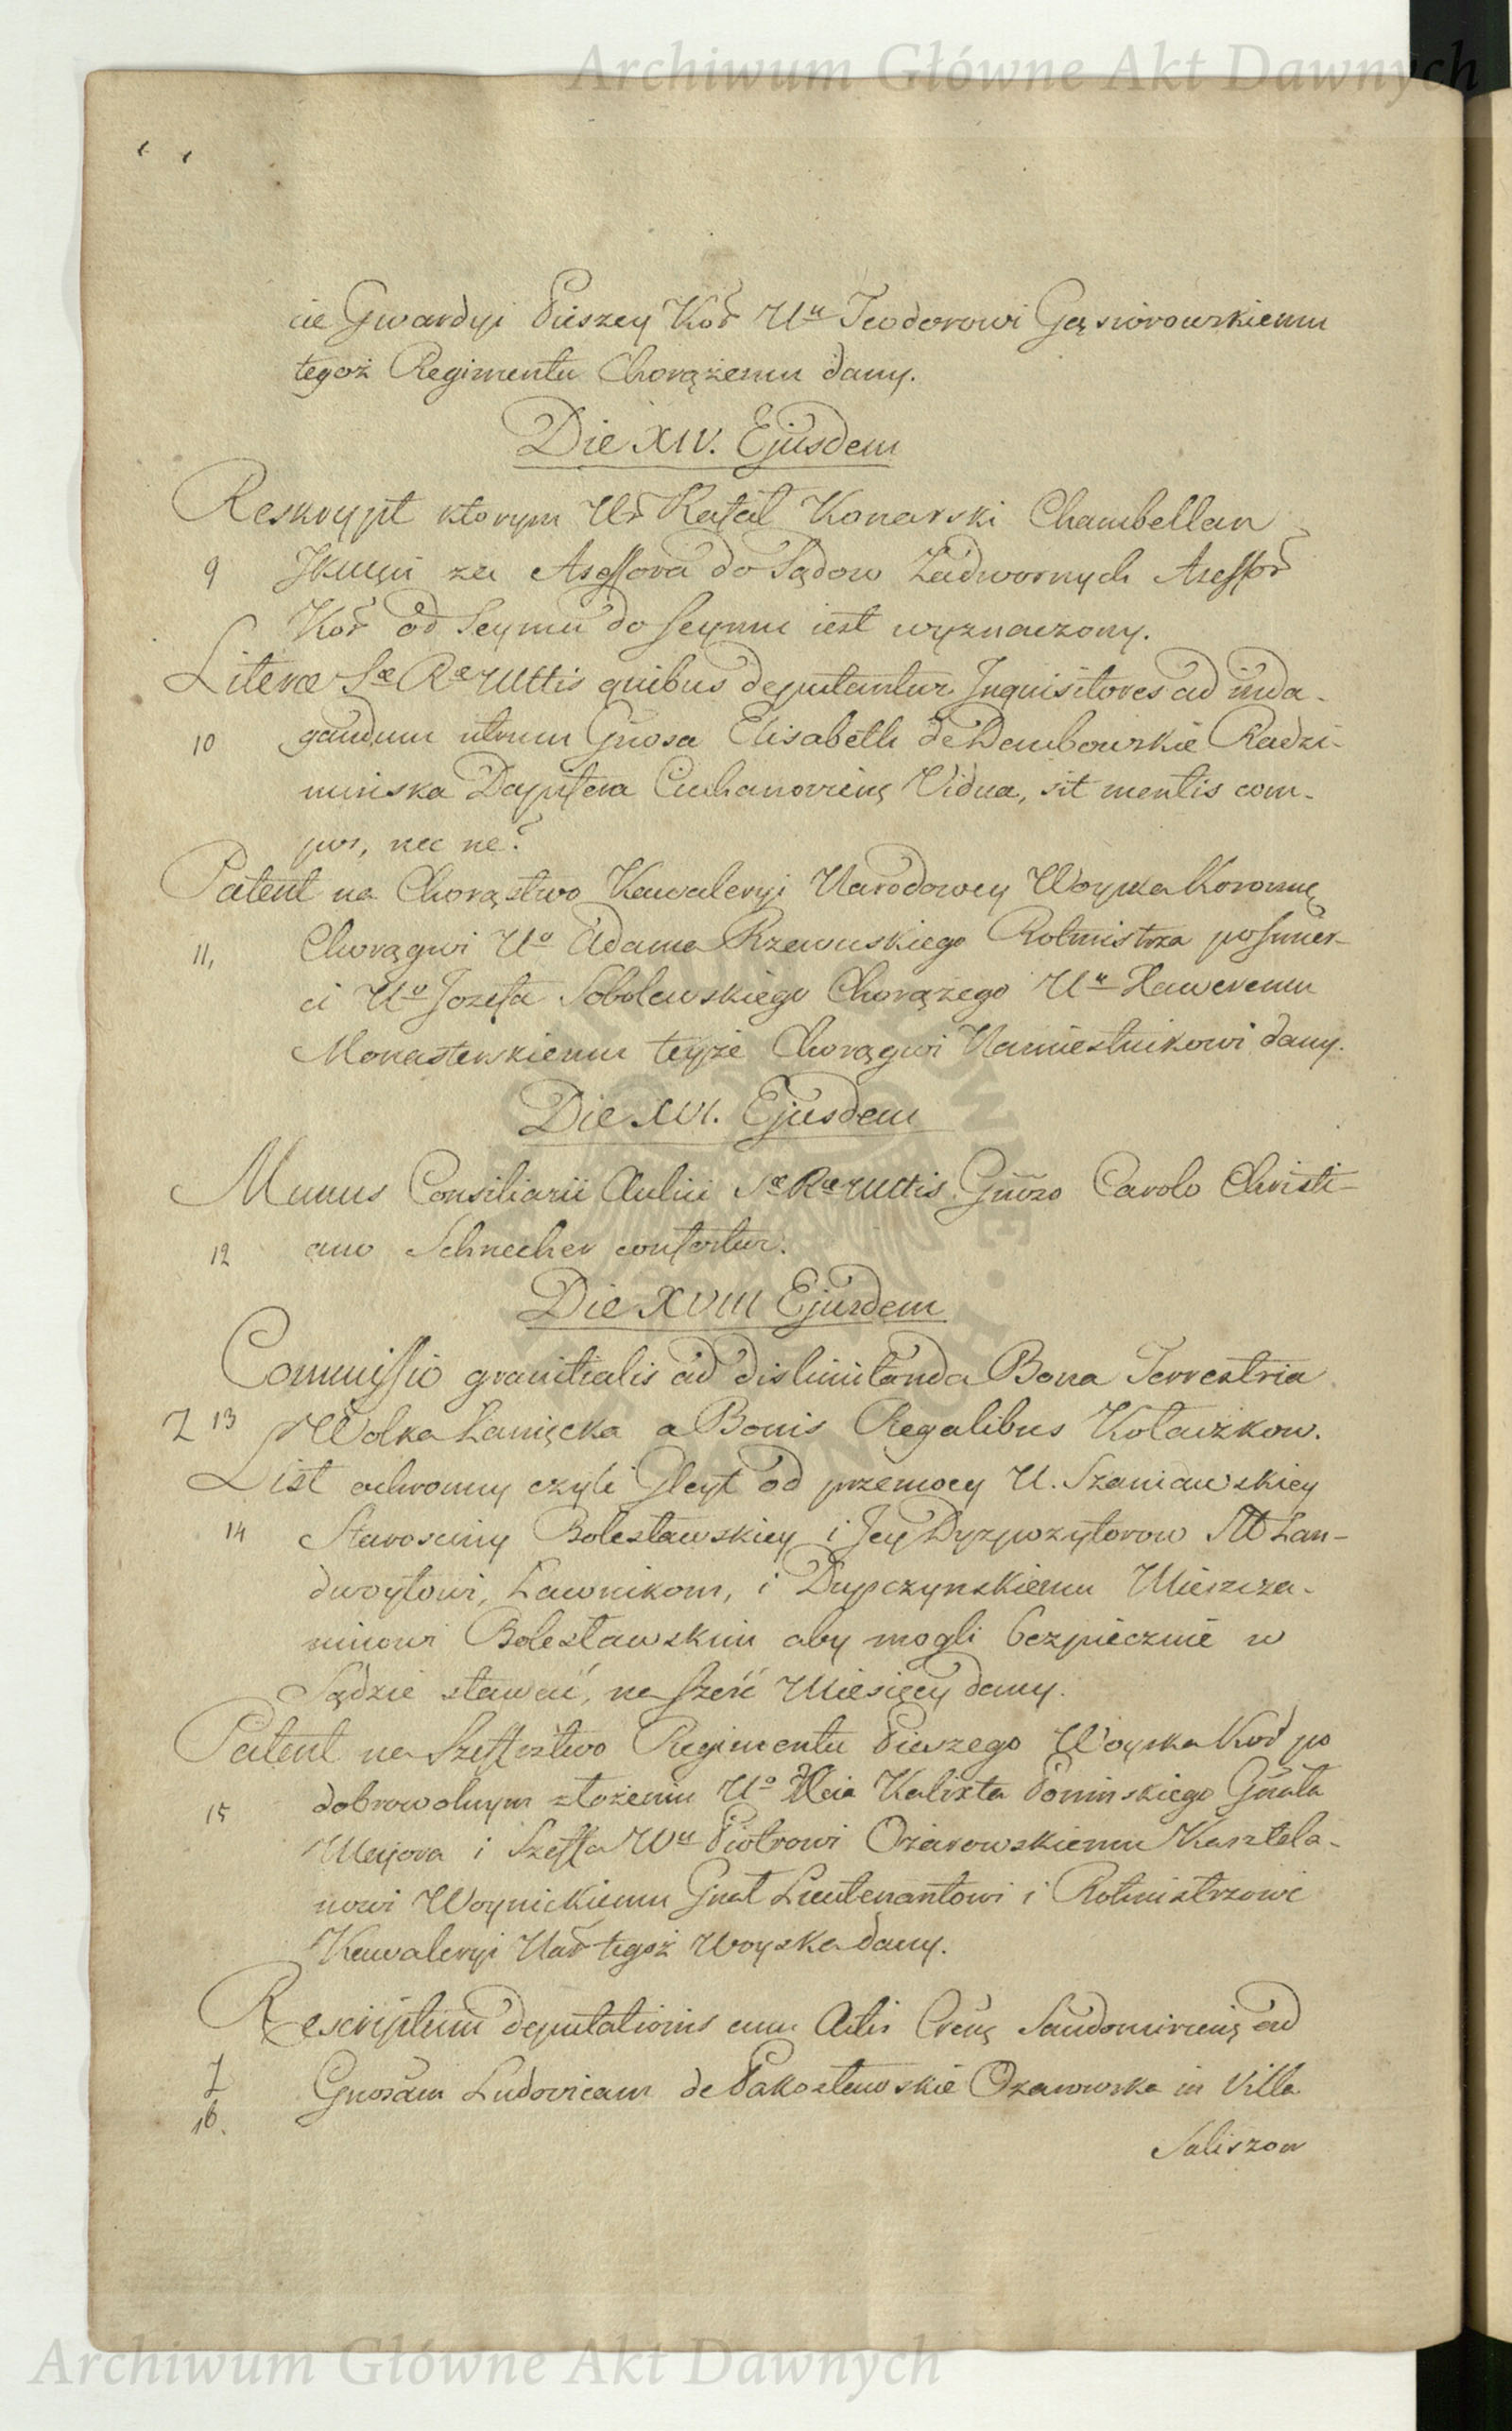 Archiwum Główne Akt Dawnych
cie Gwardyi Pieszey Kor̃ Uu Teodorowi Gąsiorowskiemu
tegoż Regimentu Chorążemu dany.
Die XIV. Ejusdem
Reskrypt ktorym Ur̃ Rafał Konarski Chambellan
9 JKMści za Assessora do Sądow Zadwornych Assessor̃
Kor̃ od Seymu do Seymu iest wyznaczony.
Literæ Sæ Ræ Mttis quibus deputantur Inquisitores ad inda-
10 gandum utrum Gnosa Elisabeth de Dembowskie Radzi-
minska Dapifera Ciechanoviens Vidua, sit mentis com-
pos, nec ne?
Patent na Chorąstwo Kawaleryi Narodowey Woyska Koronnę
11, Chorągwi Uo Adama Rzewuskiego Rotmistrza po śmier-
ci Uo Jozefa Sobolewskiego Chorążego Uu Xaweremu
Monasterskiemu teyże Chorągwi Namiestnikowi dany.
Die XVI. Ejusdem
Munus Consiliarii Aulici Sæ Ræ Mttis Gnõzo Carolo Christi-
12 ano Schnecher confertur.
Die XVIII Ejusdem
Commissio granitialis ad dislimitanda Bona Terrestria
Z 13 Wolka Łanięcka a Bonis Regalibus Kołaczkow.
List ochronny czyli Gleyt od przemocy U. Szaniawskiey
14 Starosciny Bolesławskiey i Jey Dyzpozytorow Sttt Lan-
dwoytowi, Ławnikom, i Dupczynskiemu Mieszcza-
ninowi Bolesławskim aby mogli bezpiecznie w
Sądzie stawać, na sześć Miesięcy dany.
Patent na Szeffostwo Regimentu Pieszego Woyska Kor̃ po
15 dobrowolnym złożeniu Uo Xcia Kalixta Poninskiego Gnała
Majora i Szeffa Wu Piotrowi Ożarowskiemu Kasztela-
nowi Woynickiemu Gnał Lieutenantowi i Rotmistrzowi
Kawaleryi Nar̃ tegoż Woyska dany.
Rescriptum deputationis cum Actis Creñs Sandomiriens ad
Z Gnosam Ludovicam de Pakoszewskie Ożarowska in Villa
16.
Saliszow
Archiwum Główne Akt Dawnych